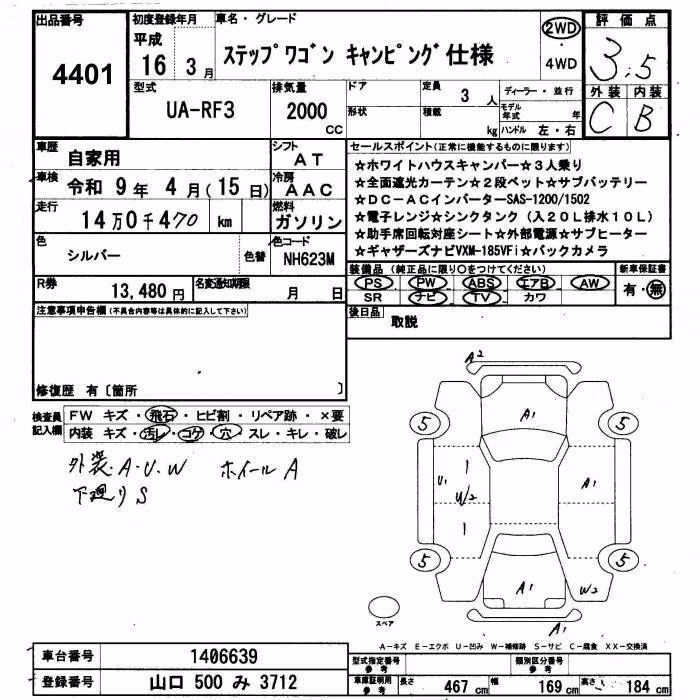 出品番号 4401
初度登録年月 平成 16 3月
車名・グレード ステップワゴン キャンピング仕様
2WD・4WD
評価点 3.5
外装 内装
C B
型式 UA-RF3
排気量 2000 CC
ドア
形状
定員 3 人
積載 kg
ディーラー・並行
モデル年式 年
ハンドル 左・右
車歴 自家用
シフト AT
車検 令和 9年 4月(15日)
冷房 AAC
走行 14万0千470 km
燃料 ガソリン
色 シルバー 色替
色コード NH623M
R券 13,480 円
名変通知期限 月 日
セールスポイント(正常に機能するものに限ります)
☆ホワイトハウスキャンパー☆3人乗り
☆全面遮光カーテン☆2段ベット☆サブバッテリー
☆DC-ACインバーターSAS-1200/1502
☆電子レンジ☆シンクタンク(入20L排水10L)
☆助手席回転対座シート☆外部電源☆サブヒーター
☆ギャザーズナビVXM-185VFi☆バックカメラ
装備品(純正品に限り○をつけてください)
PS PW ABS エアB AW
SR ナビ TV カワ
新車保証書
有・無
後日品 取説
注意事項申告欄(不具合内容等は具体的に記入して下さい)
修復歴 有〔箇所 〕
検査員記入欄
FW キズ・飛石・ヒビ割・リペア跡・×要
内装 キズ・汚レ・コゲ・穴・スレ・キレ・破レ
外装.A.U.W ホイールA
下廻りS
A2
A1
5 5
U1 W2 A1
5 5
A1 W2
A1
スペア
A-キズ E-エクボ U-凹み W-補修跡 S-サビ C-腐食 XX-交換済
車台番号 1406639
登録番号 山口 500 み 3712
型式指定番号 参考
類別区分番号 参考
車庫証明用 参考 長さ 467 cm 幅 169 cm 高さ 184 cm